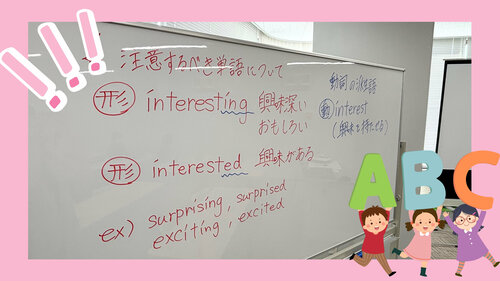 注意するべき単語について
形 interesting 興味深い
おもしろい
動詞の派生語
動 interest
(興味を持たせる)
形 interested 興味がある
ex) surprising, surprised
exciting, excited
ABC